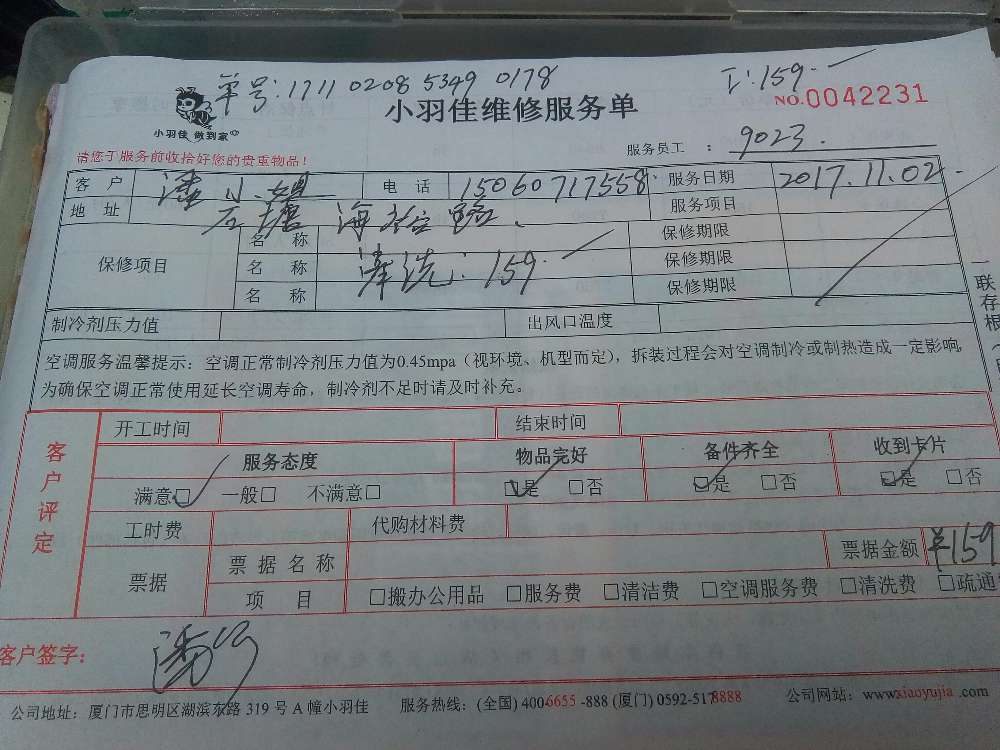 单号:1711 0208 5349 0178
工:159.—
小羽佳 做到家
小羽佳维修服务单
NO.0042231
请您于服务前收拾好您的贵重物品！
服务员工 ： 9023.
客 户 潘小姐 电 话 15060717558 服务日期 2017.11.02.
地 址 后塘 海裕路、 服务项目
保修项目 名 称 保修期限
名 称 清洗:159.— 保修期限
名 称 保修期限
制冷剂压力值 出风口温度
空调服务温馨提示：空调正常制冷剂压力值为0.45mpa（视环境、机型而定），拆装过程会对空调制冷或制热造成一定影响，
为确保空调正常使用延长空调寿命，制冷剂不足时请及时补充。
一联存根
客户评定
开工时间 结束时间
服务态度 物品完好 备件齐全 收到卡片
满意□ 一般□ 不满意□ □是 □否 □是 □否 □是 □否
工时费 代购材料费
票据 票据名称 票据金额 ¥159
项 目 □搬办公用品 □服务费 □清洁费 □空调服务费 □清洗费 □疏通
客户签字：
公司地址：厦门市思明区湖滨东路 319 号 A 幢小羽佳 服务热线：(全国) 400-6655-888 (厦门) 0592-5178888 公司网站：www.xiaoyujia.com